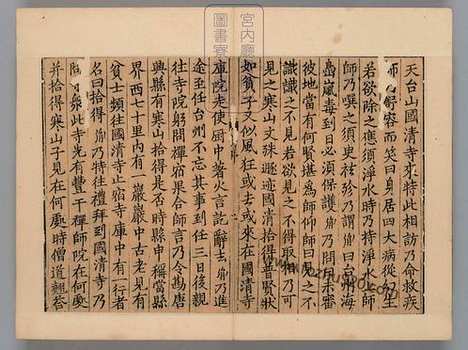 宮内廳
圖書寮
天台山國清寺來特此相訪乃命救疾
師舒容而笑曰身居四大病從幻生
若欲除之應須淨水時乃持淨水上師
師乃噀之須臾祛殄乃謂胤曰台州海
島嵐毒到日必須保護胤乃問曰未審
彼地當有何賢堪為師仰師曰見之不
識識之不見若欲見之不得取相乃可
見之寒山文殊遯迹國清拾得普賢狀
如貧子又似風狂或去或來在國清寺
庫院走使厨中著火言訖辭去胤乃進
途至任台州不忘其事到任三日後親
往寺院躬問禪宿果合師言乃令勘唐
興縣有寒山拾得是否時縣申稱當縣
界西七十里内有一巖巖中古老見有
貧士頻往國清寺止宿寺庫中有一行者
名曰拾得胤乃特往禮拜到國清寺乃
問寺衆此寺先有豐干禪師院在何處
并拾得寒山子見在何處時僧道翹答